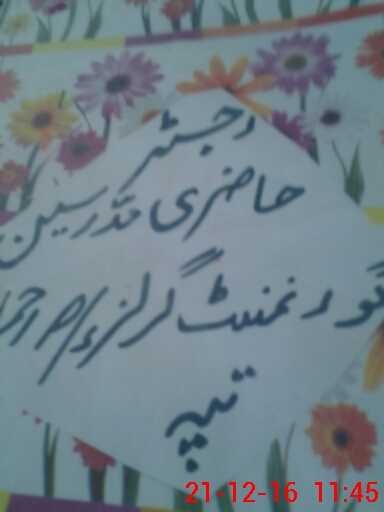 رجسٹر
حاضری مدرسین
گورنمنٹ گرلز ہائی احمد
ٹیپہ
21-12-16 11:45